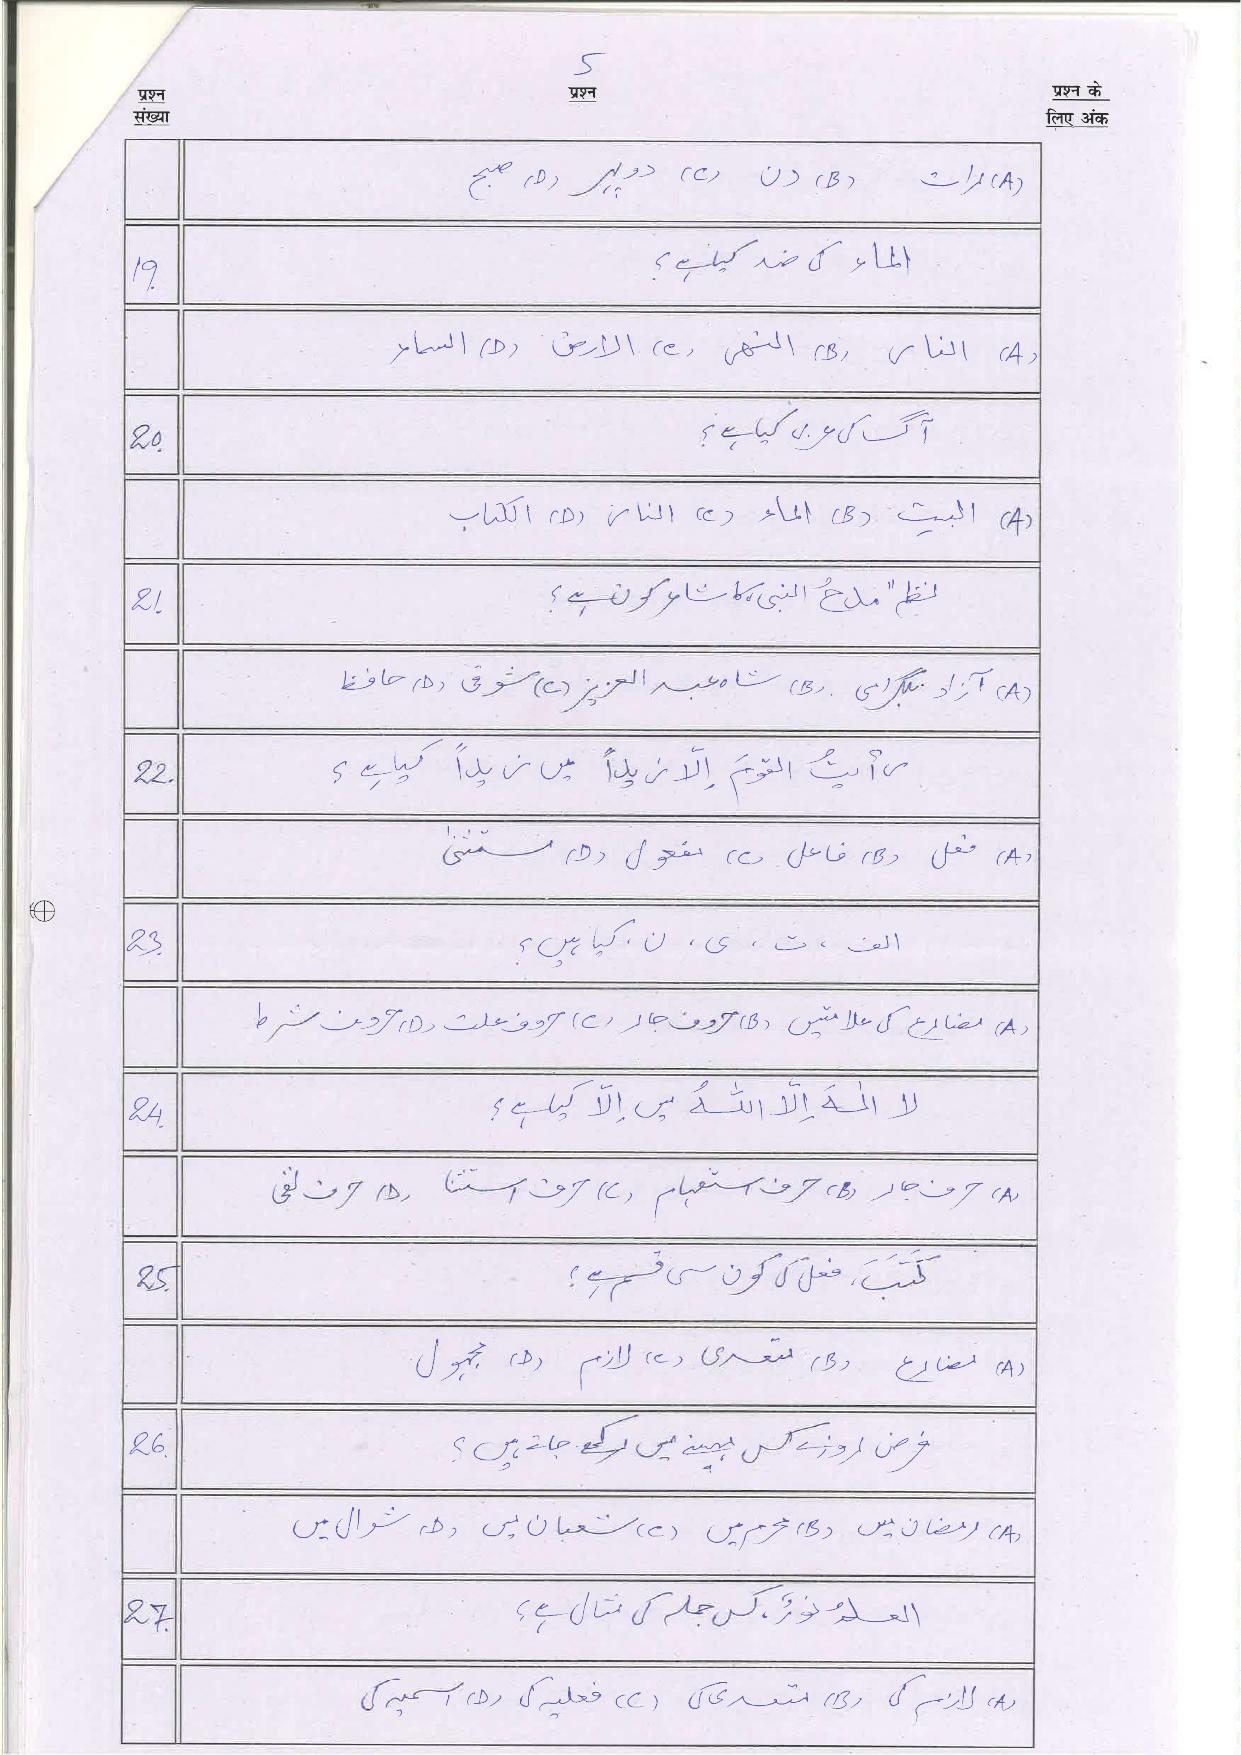 5
प्रश्न संख्या
प्रश्न
प्रश्न के लिए अंक
(A) رات (B) دن (C) دوپہر (D) صبح
19. الماء کی ضد کیا ہے؟
(A) النار (B) النھر (C) الارض (D) السماء
20. آگ کی عربی کیا ہے؟
(A) البیت (B) الماء (C) النار (D) الکتاب
21. نظم "مدحُ النبی" کا شاعر کون ہے؟
(A) آزاد بلگرامی (B) شاہ عبد العزیز (C) شوقی (D) حافظ
22. رأیتُ القومَ اِلّا زیداً میں زیداً کیا ہے؟
(A) فعل (B) فاعل (C) مفعول (D) مستثنیٰ
23. الف ، ت ، ی ، ن ، کیا ہیں؟
(A) مضارع کی علامتیں (B) حروف جار (C) حروف علت (D) حروف شرط
24. لا الٰہَ اِلّا اللہُ میں اِلّا کیا ہے؟
(A) حرف جار (B) حرف استفہام (C) حرف استثنا (D) حرف نفی
25. کَتَبَ، فعل کی کون سی قسم ہے؟
(A) مضارع (B) متعدی (C) لازم (D) مجہول
26. فرض روزے کس مہینے میں رکھے جاتے ہیں؟
(A) رمضان میں (B) محرم میں (C) شعبان میں (D) شوال میں
27. العلمُ نورٌ، کس جملہ کی مثال ہے؟
(A) لازم کی (B) متعدی کی (C) فعلیہ کی (D) اسمیہ کی